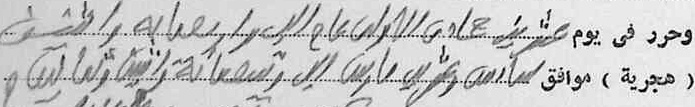 وحرر فى يوم عشرين جمادى الاولى عام الف واربعمايه و
( هجرية ) موافق سادس وعشرين مارس الف وتسعمائة واثنين وثمانين م